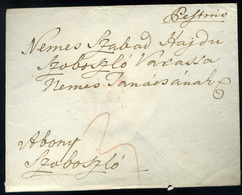 Pestinö
Nemes Szabad Hajdu
Szoboszló Varassa
Nemes Tanácsának
Abony
Szoboszló
3